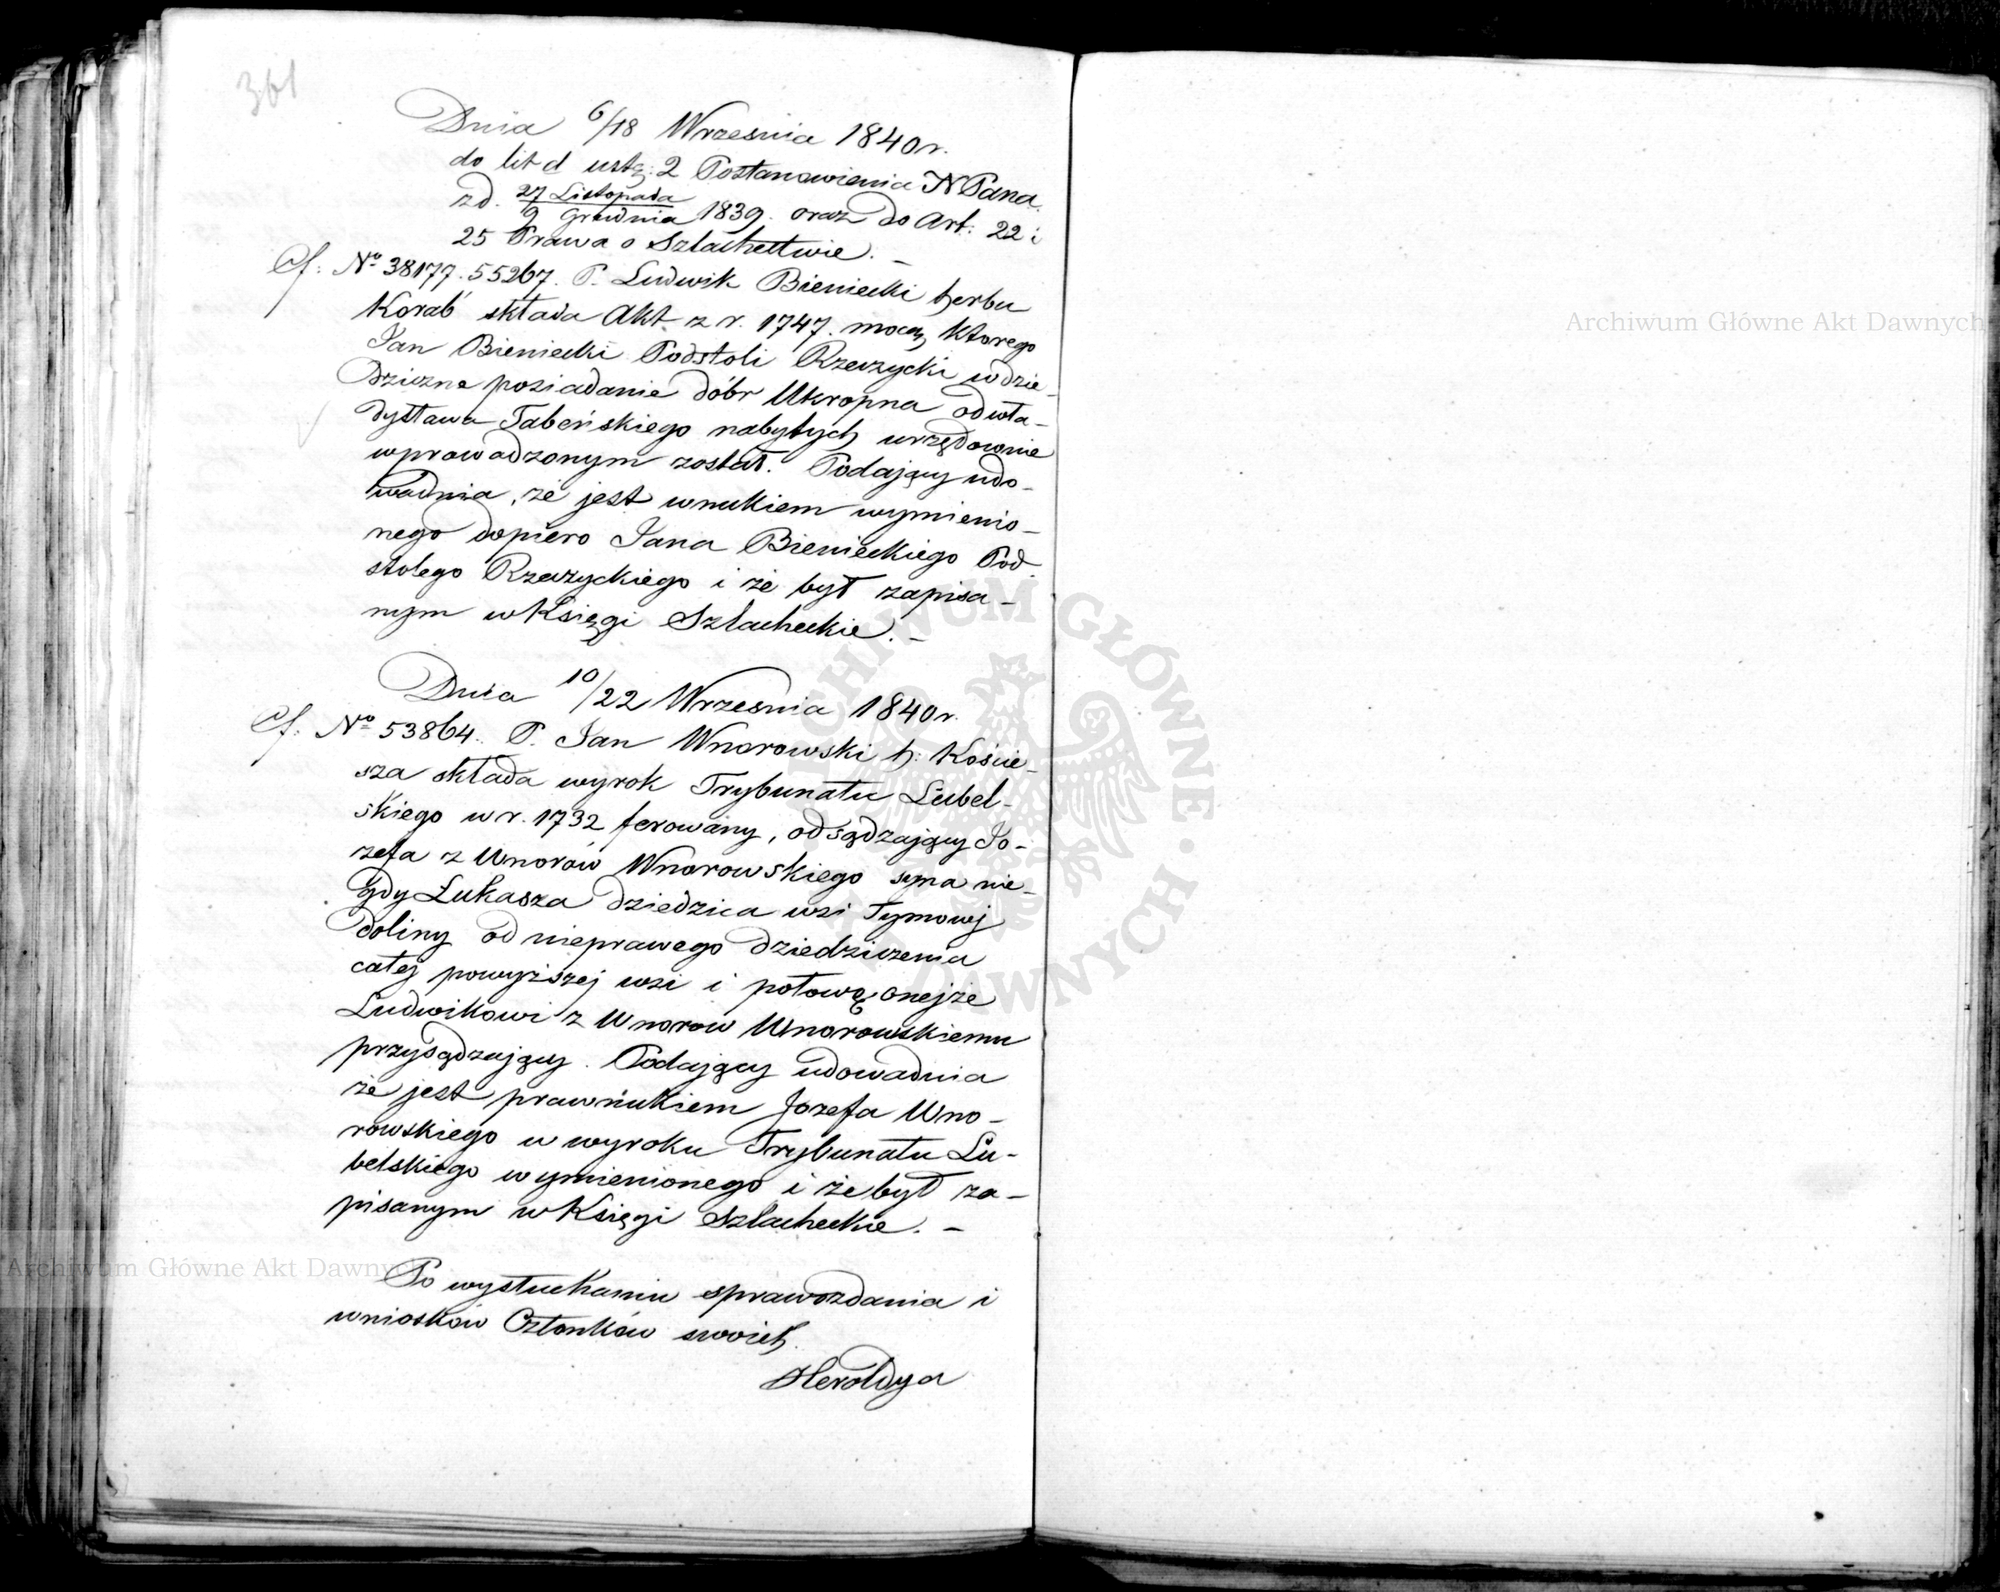 361
Dnia 6/18 Września 1840 r.
do lit d ustę: 2 Postanowienia N Pana
zd. 27 Listopada
9 Grudnia 1839. oraz do Art: 22 i
25 Prawa o Szlachectwie. –
Cf: No 38177. 55267. P. Ludwik Bieniecki herbu
Korab' składa Akt z r. 1747. mocą ktorego
Jan Bieniecki Podstoli Rzeczycki w dzie-
dziczne posiadanie dóbr Ukropna od Wła-
dysława Tabeńskiego nabytych urzędownie
wprowadzonym został. Podający udo-
wadnia, że jest wnukiem wymienio-
nego dopiero Jana Bienieckiego Pod-
stolego Rzeczyckiego i że był zapisa-
nym w Księgi Szlacheckie. –
Dnia 10/22 Września 1840 r.
Cf: No 53864. P. Jan Wnorowski h: Koście-
sza składa wyrok Trybunału Lubel-
skiego w r. 1732 ferowany, odsądzający Jo-
zefa z Wnorów Wnorowskiego syna nie-
gdy Łukasza dziedzica wsi Tymowej
doliny od nieprawego dziedziczenia
całej powyższej wsi i połowę onejże
Ludwikowi z Wnorow Wnorowskiemu
przysądzający. Podający udowadnia
że jest prawnukiem Jozefa Wno-
rowskiego w wyroku Trybunału Lu-
belskiego wymienionego i że był za-
pisanym w Księgi Szlacheckie. –
Po wysłuchaniu sprawozdania i
wniosków Członków swoich
Heroldya
Archiwum Główne Akt Dawnych
Archiwum Główne Akt Dawnych
ARCHIWUM GŁÓWNE AKT DAWNYCH